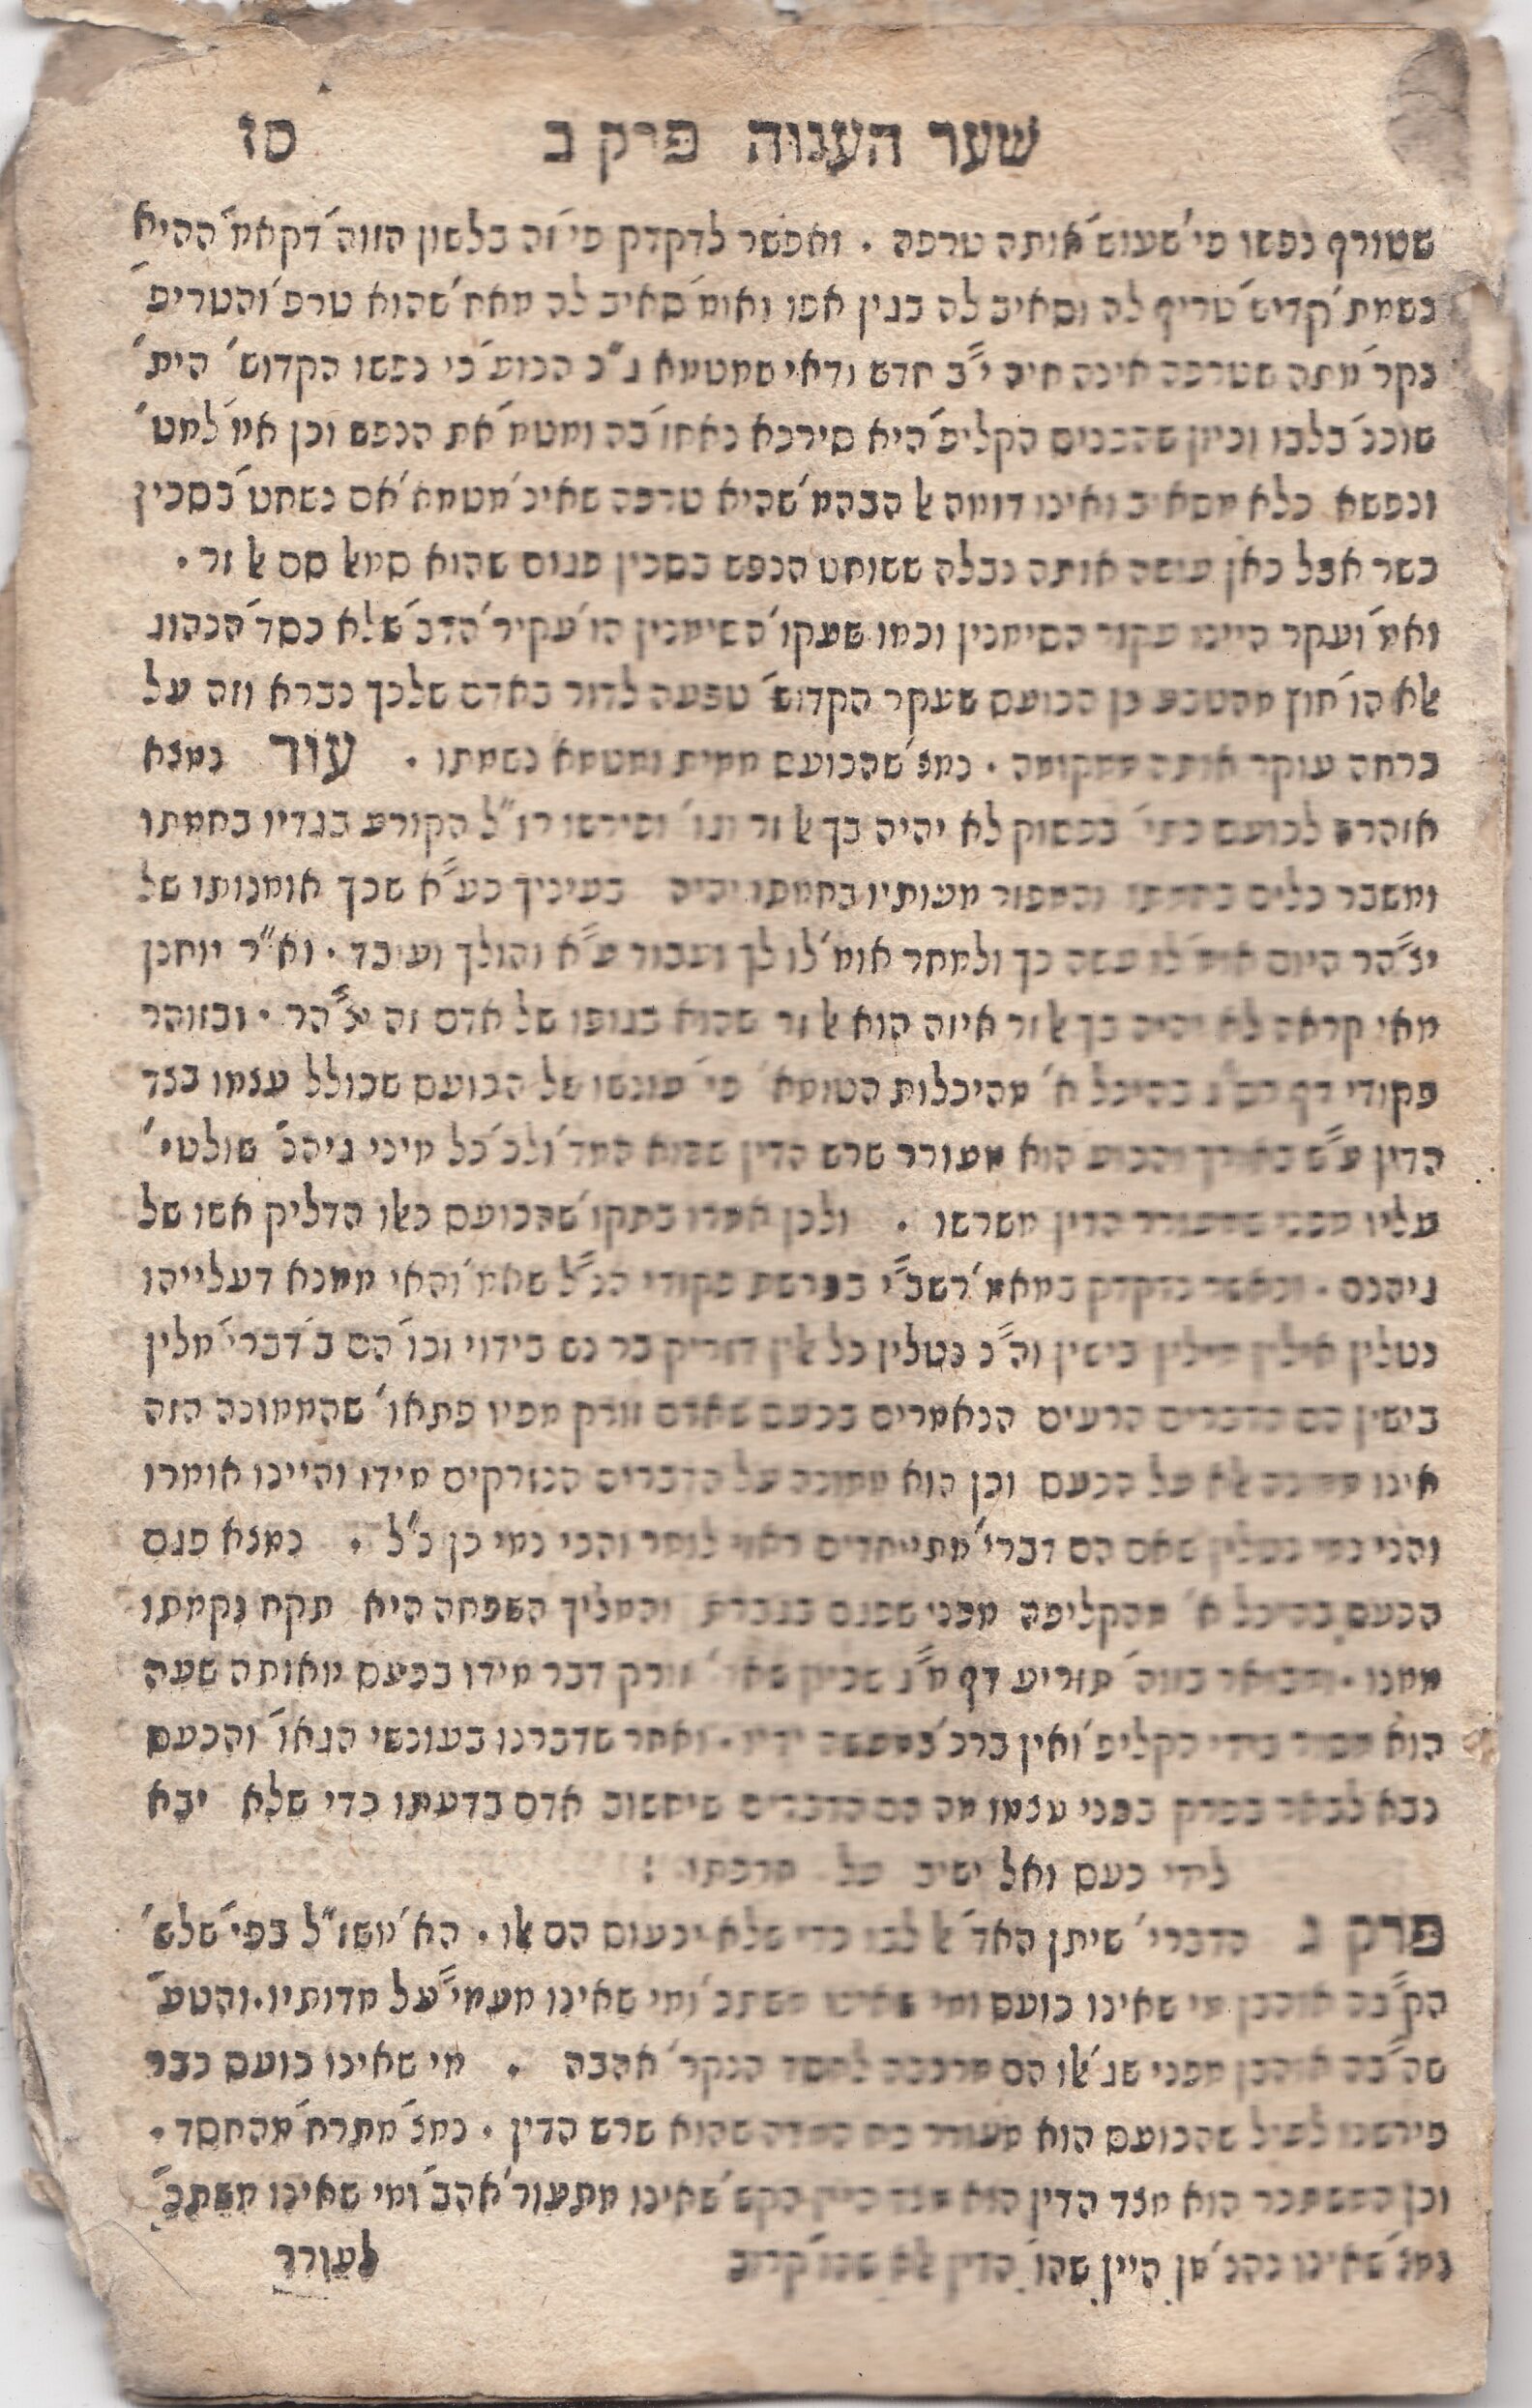 שער הענוה פרק ב סז
שטורף נפשו פי' שעוש' אותה טרפה . ואפשר לדקדק פי' זה בלשון הזוה' דקאמ' ההיא
נשמת' קדיש' טריף לה וסאיב לה בגין אפו ואומ' סאיב לה מאח' שהוא טרפ' והטריפ'
נקר' מתה שטרפה אינה חיה י"ב חדש ודאי שמטמא ג"כ הכוע' כי נפשו הקדוש' הית'
שוכנ' בלבו וכיון שהכניס הקליפ' היא סירכא נאחז' בה ומטמ' את הנפש וכן אמ' למט'
ונפשא כלא מסאיב ואינו דומה אל הבהמ' שהיא טרפה שאינ' מטמא' אם נשחט' בסכין
כשר אבל כאן עושה אותה נבלה ששוחט הנפש בסכין פגום שהוא סמאל סם אל זר .
ואמ' ועקר היינו עקור הסימנין וכמו שעקו' הסימנין הו' עקיר' הדב' שלא כסד' הנהוג
אלא הו' חוץ מהטבע כן הכועס שעקר הקדוש' טפעה לדור באדם שלכך נברא וזה על
ברחה עוקר אותה ממקומה . נמצ' שהכועס ממית ומטמא נשמתו . עוד נמצא
אזהרה לכועס כתי' בפסוק לא יהיה בך אל זר וגו' ופירשו רז"ל הקורע בגדיו בחמתו
ומשבר כלים בחמתו והמפזר מעותיו בחמתו יהיה בעיניך כע"א שכך אומנותו של
יצ"הר היום אומ' לו עשה כך ולמחר אומ' לו לך ועבוד ע"א והולך ועובד . וא"ר יוחנן
מאי קראה לא יהיה בך אל זר איזה הוא אל זר שהוא בגופו של אדם זה יצ"הר . ובזוהר
פקודי דף בהיכל א' מהיכלות הטומא' פי' עונשו של הכועס שכולל עצמו בצד
הדין ע"ש באורך והכוע' הוא מעורר שרש הדין שהוא המד' ולכ' כל מיני גיהנ' שולטי'
עליו מפני שמעורר הדין משרשו . ולכן אמרו בתקו' שהכועס כאלו הדליק אשו של
גיהנם . וכאשר נדקדק במאמ' רשב"י בפרשת פקודי הנ"ל שאמ' והאי ממנא דעלייהו
נטלין אילין מילין בישין וה"נ נטלין כל אלין דזריק בר נש בידוי וכו' הם ב' דברי' מלין
בישין הם הדברים הרעים הנאמרים בכעס שאדם זורק מפיו פתאו' שהממונה הזה
אינו ממונה אלא על הכעס וכן הוא ממונה על הדברים הנזרקים מידו והיינו אומרו
והני נמי נטלין שאם הם דברי' מתייחדים ראוי לומר והכי נמי כן נ"ל . נמצא פגם
הכעס בהיכל א' מהקליפה מפני שפגם בגברת והמליך השפחה היא תקח נקמתו
ממנו . ומבואר בזוה' תזריע דף שכיון שאד' זורק דבר מידו בכעס מאותה שעה
הוא מסור בידי הקליפ' ואין ברכ' במעשה ידיו . ואחר שדברנו בעונשי הגאו' והכעס
נבא לבאר בפרק בפני עצמו מה הם הדברים שיחשוב אדם בדעתו כדי שלא יבא
לידי כעס ואל ישיב על :
פרק ג הדברי' שיתן האד' אל לבו כדי שלא יכעוס הם אלו . הא' משז"ל בפי' שלש'
הק"בה אוהבן מי שאינו כועס ומי שאינו משתכ' ומי שאינו מעמי"על מדותיו . והטע'
שה"בה אוהבן מפני שג' אלו הם מרכבה לחסד הנקר' אהבה . מי שאינו כועס כבר
פירשנו לעיל שהכועס הוא מעורר כח המדה שהוא שרש הדין . נמצ' מתרח' מהחסד .
וכן המשתכר הוא מצד הדין הוא מצד היין הקש' שאינו מתעור' אהב' ומי שאינו משתכ'
נמצ' שאינו נהנ' מן היין שהו' הדין אלא שהו' קרוב
לעורר